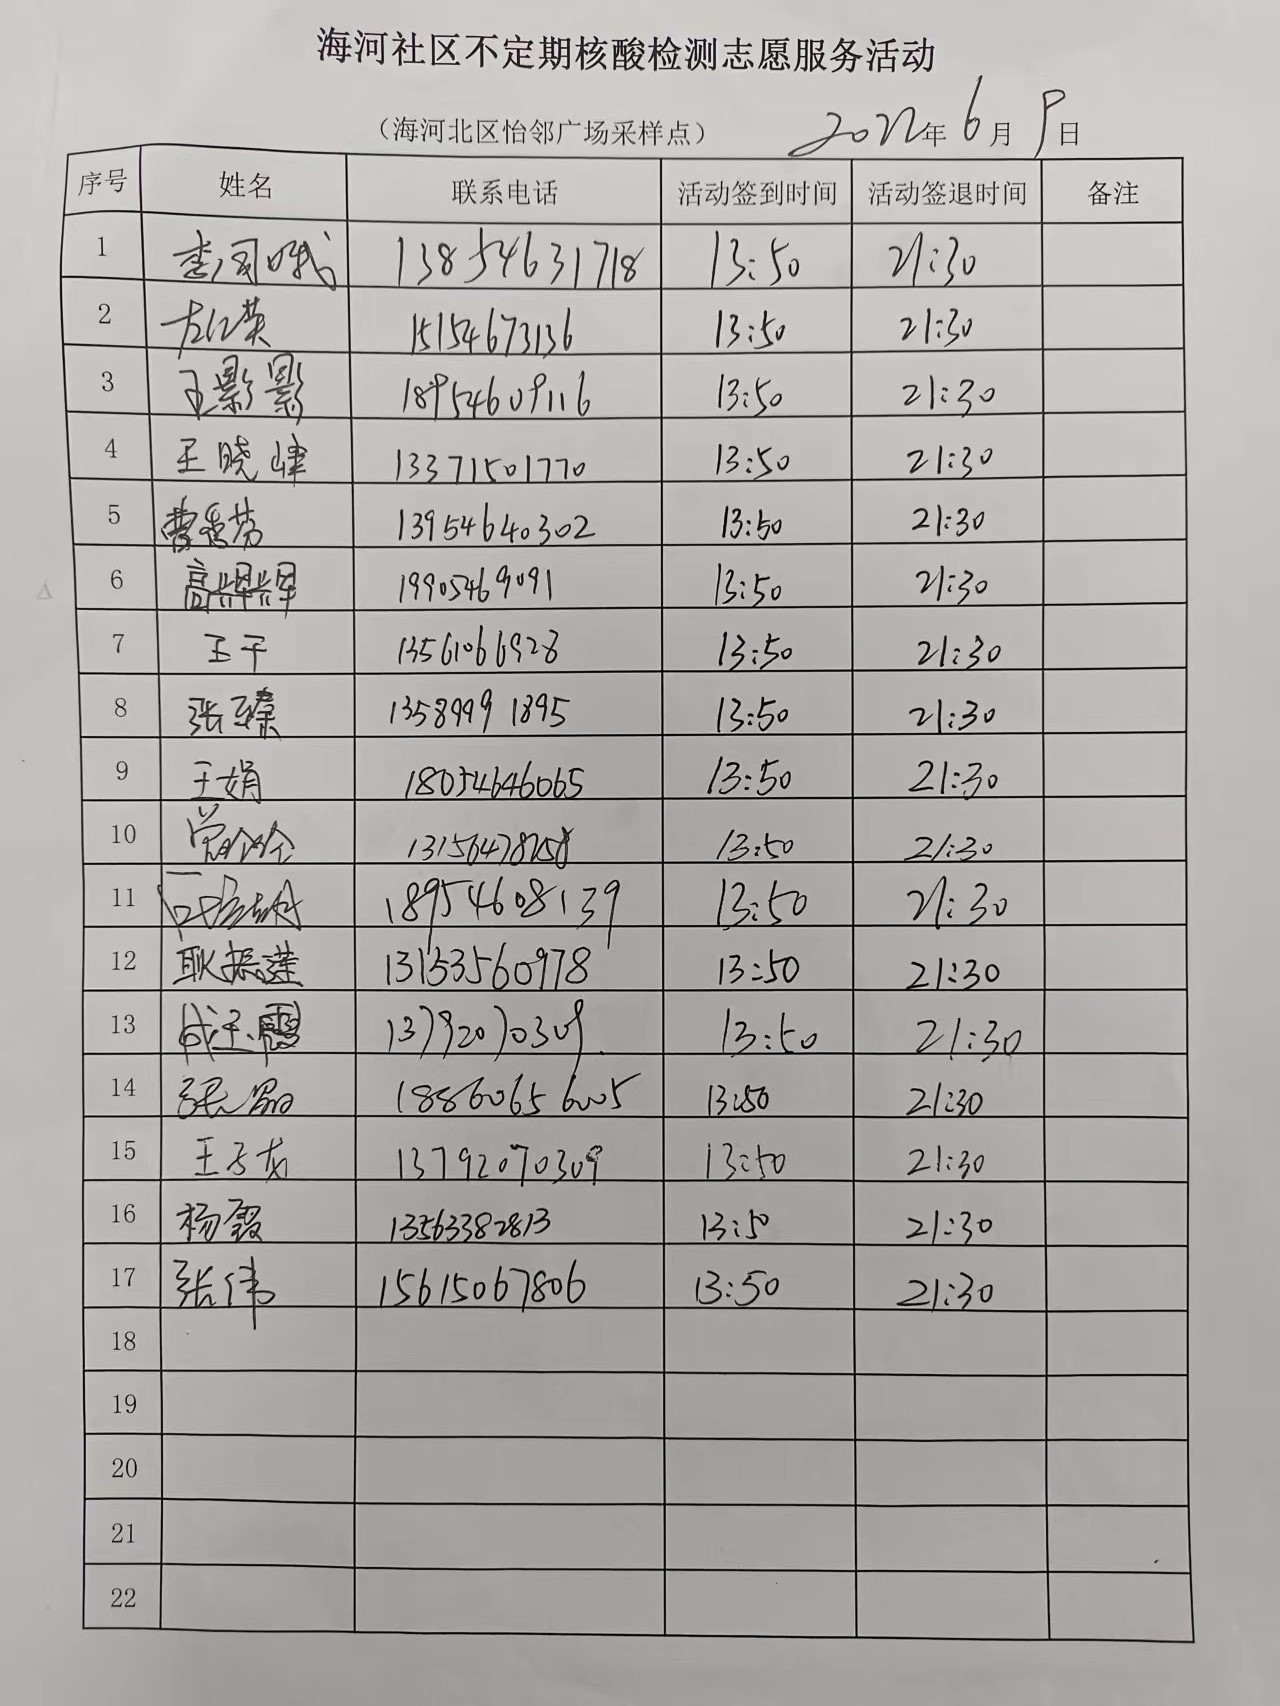 海河社区不定期核酸检测志愿服务活动
（海河北区怡邻广场采样点） 2022年6月9日
序号 姓名 联系电话 活动签到时间 活动签退时间 备注
1 13854631718 13:50 21:30
2 15154673136 13:50 21:30
3 王影影 18954609116 13:50 21:30
4 王晓峰 13371501770 13:50 21:30
5 曹秀芬 13954640302 13:50 21:30
6 高辉辉 19905469091 13:50 21:30
7 王干 13561066928 13:50 21:30
8 张臻 13589991895 13:50 21:30
9 王娟 18054646065 13:50 21:30
10 13:50 21:30
11 18954608139 13:50 21:30
12 耿振莲 13153560978 13:50 21:30
13 成玉霞 13792070309 13:50 21:30
14 张磊 18860656005 13:50 21:30
15 王子龙 13792070309 13:50 21:30
16 杨霞 13563382813 13:50 21:30
17 张伟 15615067806 13:50 21:30
18
19
20
21
22